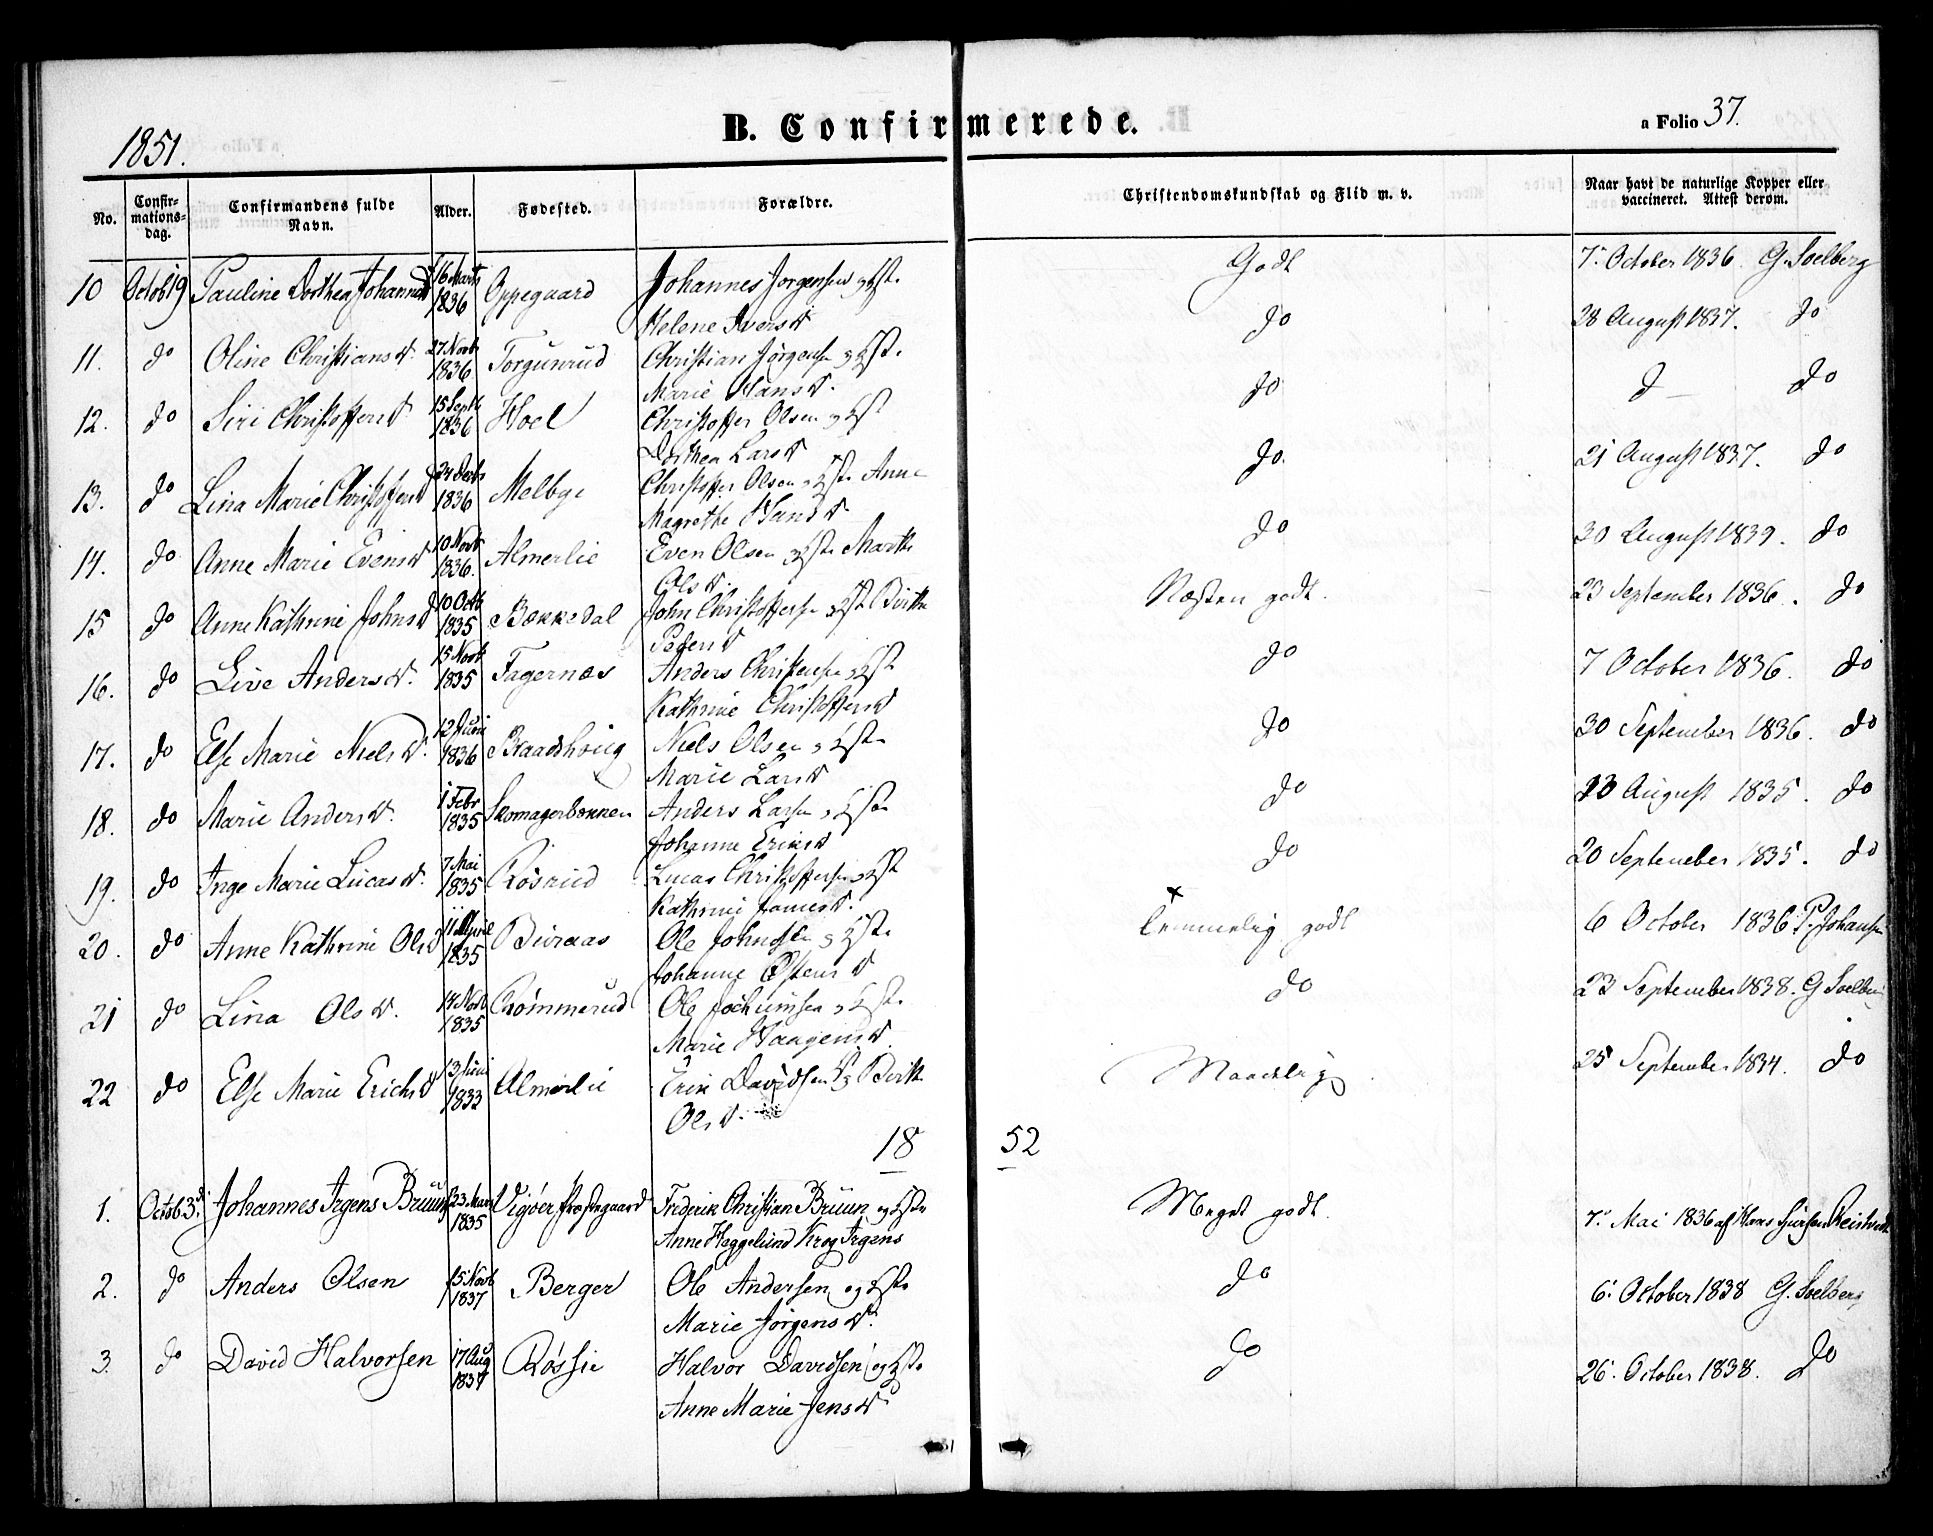 1851.
B. Confirmerede.
a Folio 37.
No. Confirmationsdag. Confirmandens fulde Navn. Alder. Fødested. Forældre. Christendomskundskab og Flid m. v. Naar havt de naturlige Kopper eller vaccineret. Attest derom.
10 Octob 19 Pauline Dorthea Johannesd 16 Marts 1836 Oppegaard Johannes Jørgensen og Hst. Godt 7 October 1836. G. Soelberg
Helene Iversd
11. do Oline Christiansd. 27 Novb 1836 Torgunrud Christian Jørgensen og Hst. do 28 August 1837. do
Marie Hansd.
12. do Siri Christoffersd 15 Septb 1836 Hoel Christoffer Olsen og Hst do d do
Dorthea Larsd
13. do Lina Marie Christoffersd 24 Decbr 1836 Melbye Christoffer Olsen og Hst. Anne do 21 August 1837. do
Magrethe Hansd.
14. do Anne Marie Evensd 10 Novb 1836. Almerlie Even Olsen og Hst. Marthe do 30 August 1839. do
Olsd.
15 do Anne Kathrine Johnsd 10 Octb 1835 Bækkedal John Christoffersen og Hst Birthe Næsten godt. 23 September 1836. do
Pedersd
16. do Live Andersd. 15 Novb 1835 Fagernæs Anders Christensen og Hst do 7 October 1836. do
Kathrine Christoffersd
17. do Else Marie Nielsd. 12 Juni 1836 Braadhoug Niels Olsen og Hst. do 30 September 1836. do
Marie Larsd
18. do Marie Andersd. 1 Febr 1835 Skomagerbonnen Anders Larsen og Hst. do 23 August 1835. do
Johanne Eriksd
19. do Inge Marie Lucasd. 7 Mai 1835 Rosrud Lucas Christoffersen og Hst do 20 September 1835. do
Kathrine
20. do Anne Kathrine Olsd 11 April 1835 Buraas Ole Johnsen og Hst. Temmelig godt 6 October 1836 P. Johansen
Johanne Østensd
21 do Lina Olsd. 14 Novb 1835 Rømmerud Ole Jochumsen og Hst. do 23 September 1838. G Soelberg
Marie Haagensd.
22 do Else Marie Erichsd 13 Juni 1833 Almerlie Erik Davidsen og Birthe Maadelig 25 September 1834. do
Olsd.
18 52
1. Octob 3d. Johannes Irgens Bruun 23 Mars 1835 Vigøer Præstegaard Frederik Christian Bruun og Hst. Meget godt. 7. Mai 1836 af Hans
Anne Heggelund Krog Irgens
2. do Anders Olsen 15 Novb 1837 Berger Ole Andersen og Hst. do 6. October 1838 G. Soelberg
Marie Jørgensd.
3. do David Halvorsen 17 Aug 1837 Røssie Halvor Davidsen og Hst. do 26. October 1838. do
Anne Marie Jensd